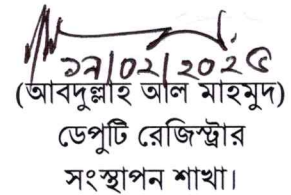 ১৭/০২/২০২৫
(আবদুল্লাহ আল মাহমুদ)
ডেপুটি রেজিস্ট্রার
সংস্থাপন শাখা।